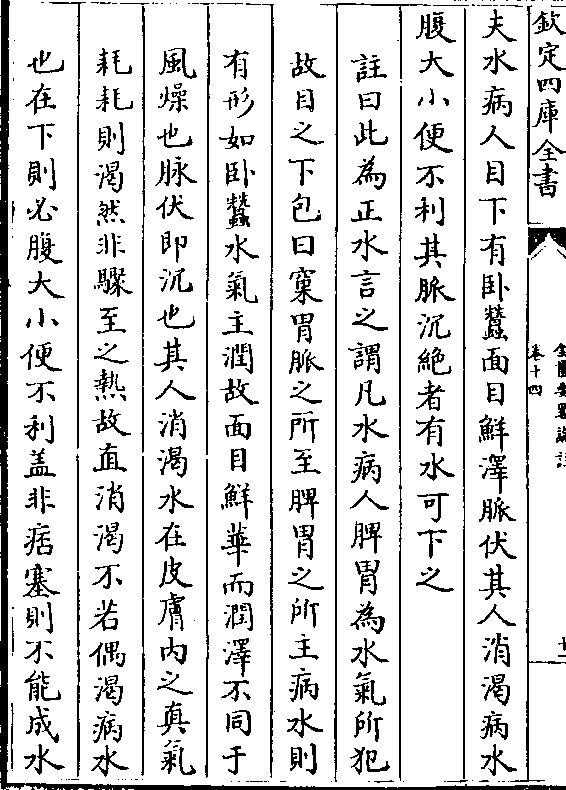 欽定四庫全書
金匱要略論註
卷十四
夫水病人目下有卧蠶面目鮮澤脈伏其人消渴病水
腹大小便不利其脈沉絶者有水可下之
註曰此為正水言之謂凡水病人脾胃為水氣所犯
故目之下包曰窠胃脈之所至脾胃之所主病水則
有形如卧蠶水氣主潤故面目鮮華而潤澤不同于
風燥也脉伏即沉也其人消渴水在皮膚内之真氣
耗耗則渴然非驟至之熱故直消渴不若偶渴病水
也在下則必腹大小便不利盖非痞塞則不能成水